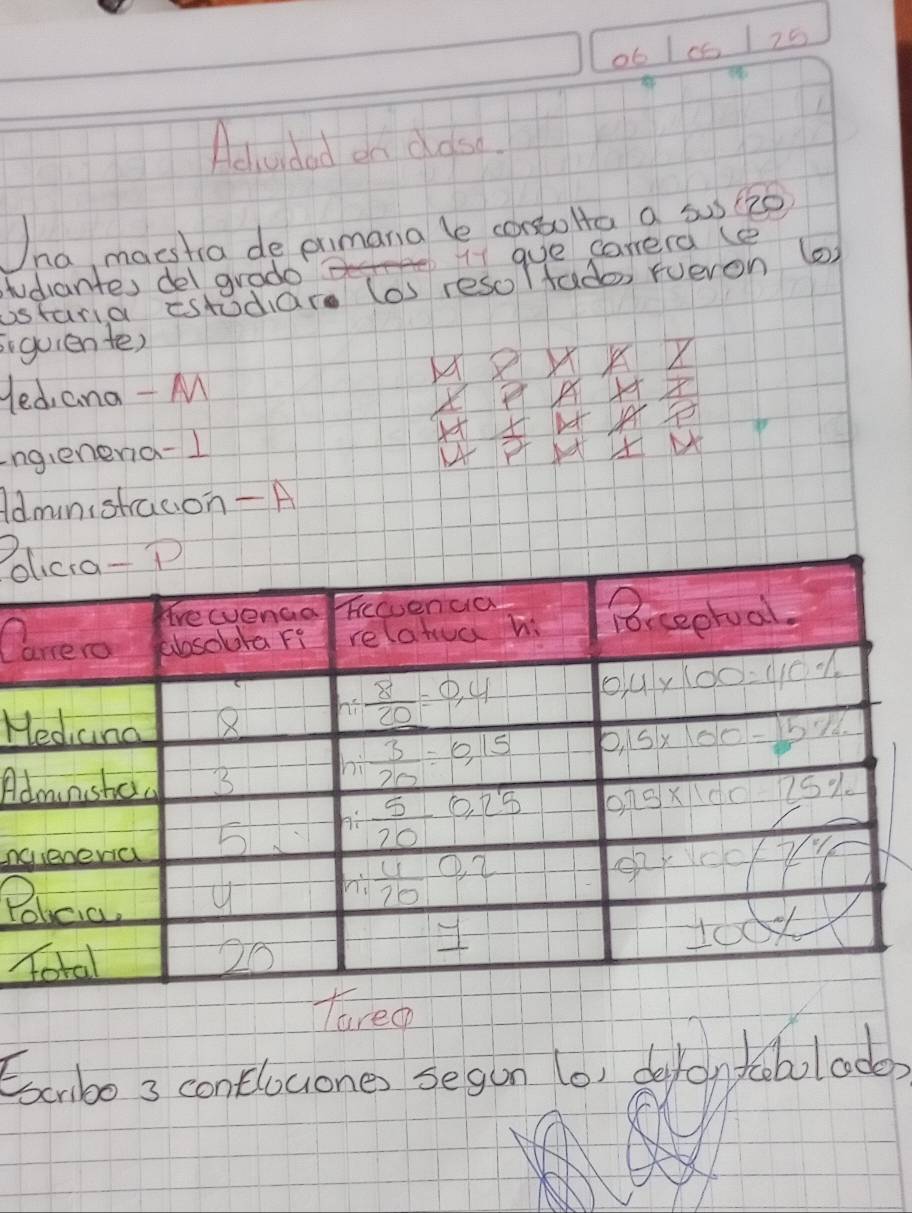 06 / 05 / 25
Actividad en clase.
Una maestra de primaria le consulta a sus 20
studiantes del grado 11 que carrera le
ustaria Estudiar los resoltados fueron los
siguientes
Medicina - M
M P M A I
I P A M I
Ingieneria - I
M I M A P
M P M I M
Administracion - A
Policia - P
Carrera Frecuencia absoluta Fi Frecuencia relativa hi Porceptual.
Medicina 8 hi= 8/20 = 0,4 0,4 x 100 = 40%
Administra 3 hi 3/20 = 0,15 0,15 x 100 = 15%
ingieneria 5 hi 5/20 0,25 0,25 x 100 25%
Policia. 4 hi 4/20 0,2 0,2 x 100
Total 20 1 100%
Tarea
Escribo 3 conclociones segun los datos tabulados